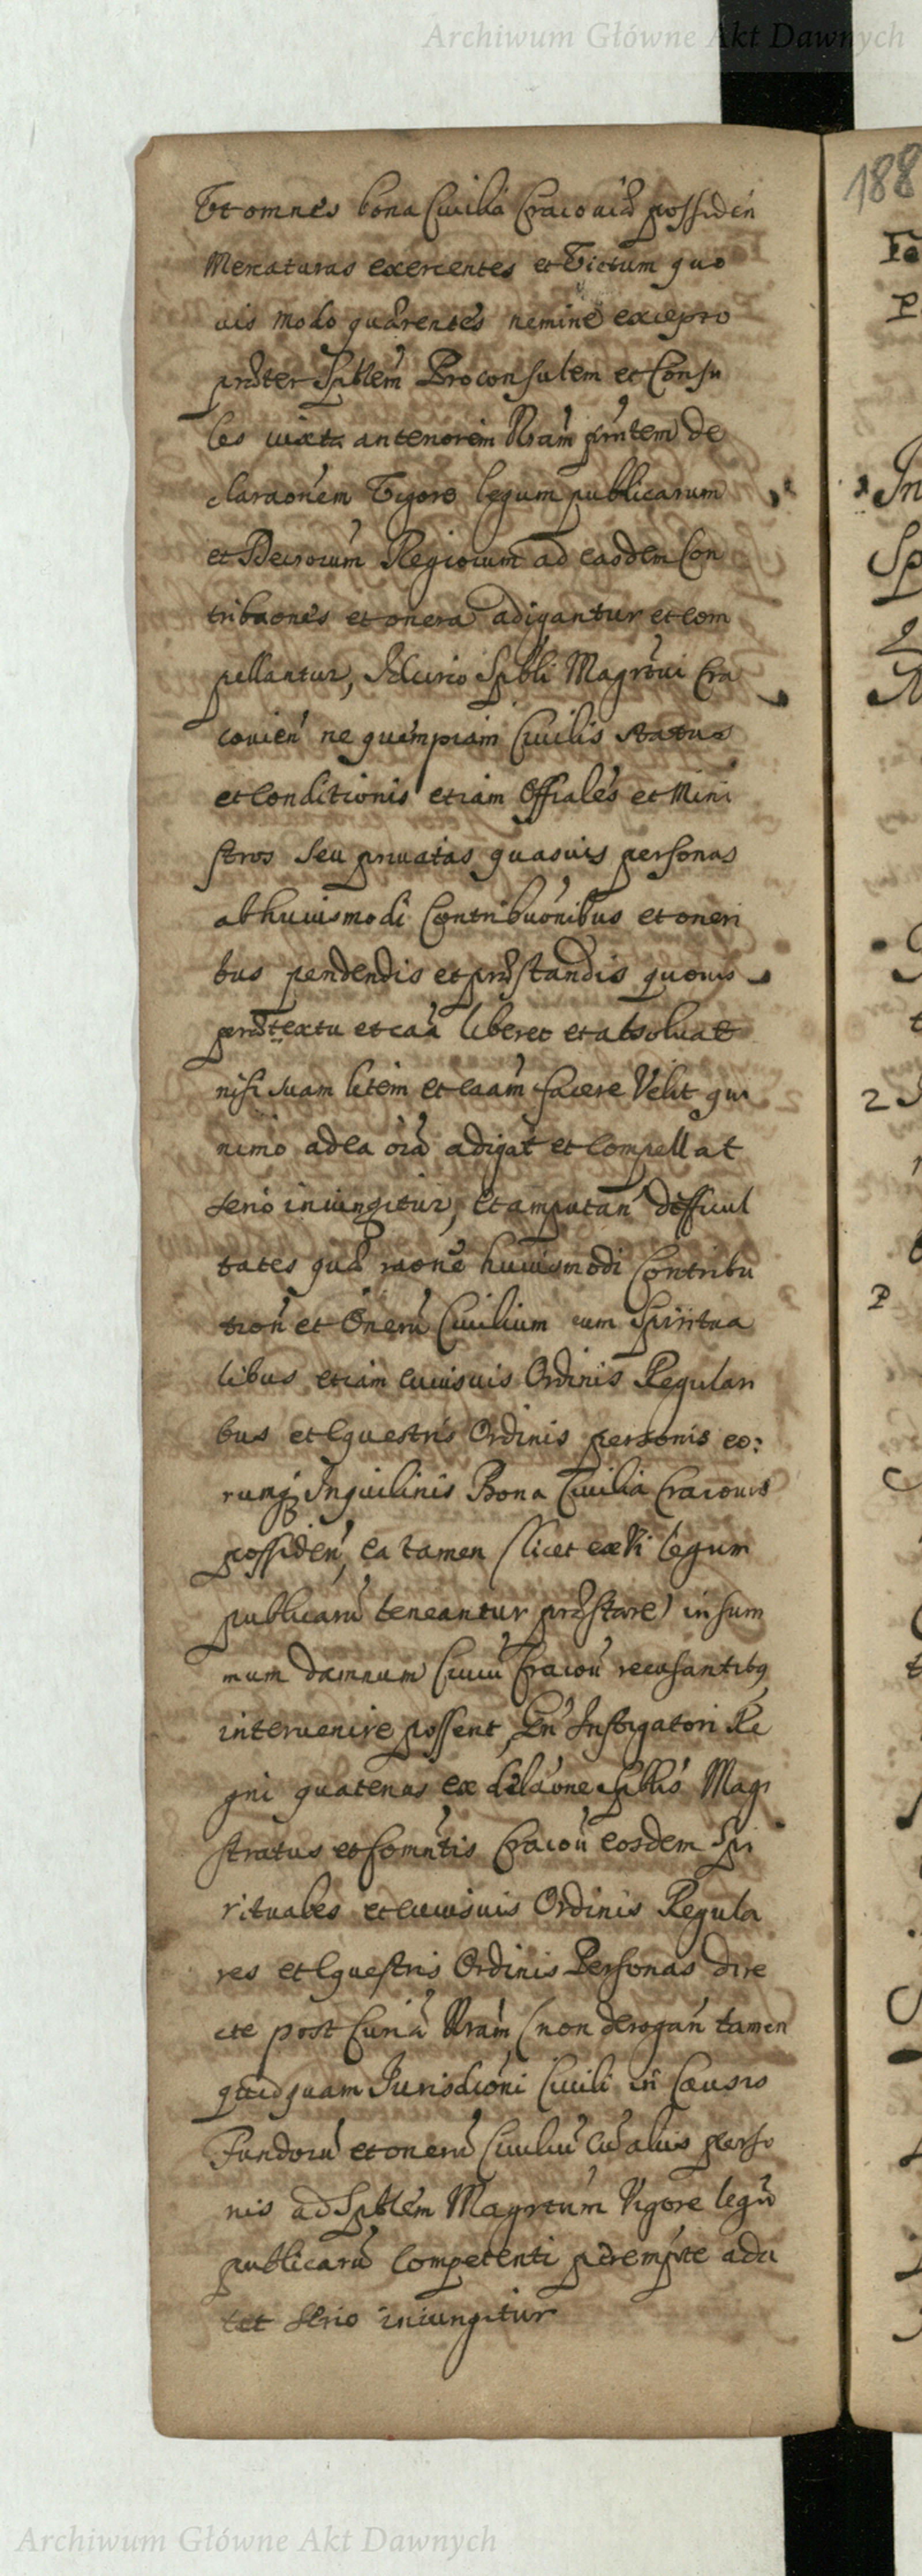 Archiwum Główne Akt Dawnych
188
Et omnes bona Civilia Cracoviæ possiden̄
Mercaturas exercentes et Victum quo
vis modo quærentes nemine excepto
præter Spblem̄ Proconsulem et Consu
les iuxta anteriorem Nr̄am pn̄tem de
claraōnem Vigore legum publicarum
et Decretorum̄ Regiorum ad easdem Con
tribuōnes et onera adigantur et com
pellantur, Idcirco Spbli Magr̄tui Cra
covien̄ ne quem̄piam Civilis status
et Conditionis etiam Offiales et Mini
stros Seu privatas quasvis personas
ab huiusmodi Contribuōnibus et oneri
bus pendendis et præstandis quovis
prætextu et caā liberet et absolvat
nisi suam litem et caām facere Velit qui
nimo ad ea oīa adigat et Compellat
serio iniungitur, Et amputan̄ difficul
tates quæ raōne huiusmodi Contribu
tion̄ et Onerū Civilium cum Spiritua
libus etiam cuiusvis Ordinis Regulari
bus et Equestris Ordinis personis eo:
rumq; Inquilinis Bona Civilia Cracovi
possiden̄, ea tamen (licet ex Vi legum
publicarū teneantur præstare) in sum
mum damnum Civiū Cracov̄ recusantibq
intervenire possent, Gn̄ Instigatori Re
gni quatenus ex delaōne Spblis Magi
stratus et Com̄ntis Cracov̄ eosdem Spi
rituales et cuiusvis Ordinis Regula
res et Equestris Ordinis Personas dire
cte post Curiā Nr̄am (non derogan̄ tamen
quidquam Jurisdiōni Civili in Causis
Fundorū et onerū Civiliū cū aliis perso
nis ad Spblem̄ Magrtum̄ Vigore legū
publicarū Competenti peremp̄te adci
tet serio iniungitur
Archiwum Główne Akt Dawnych